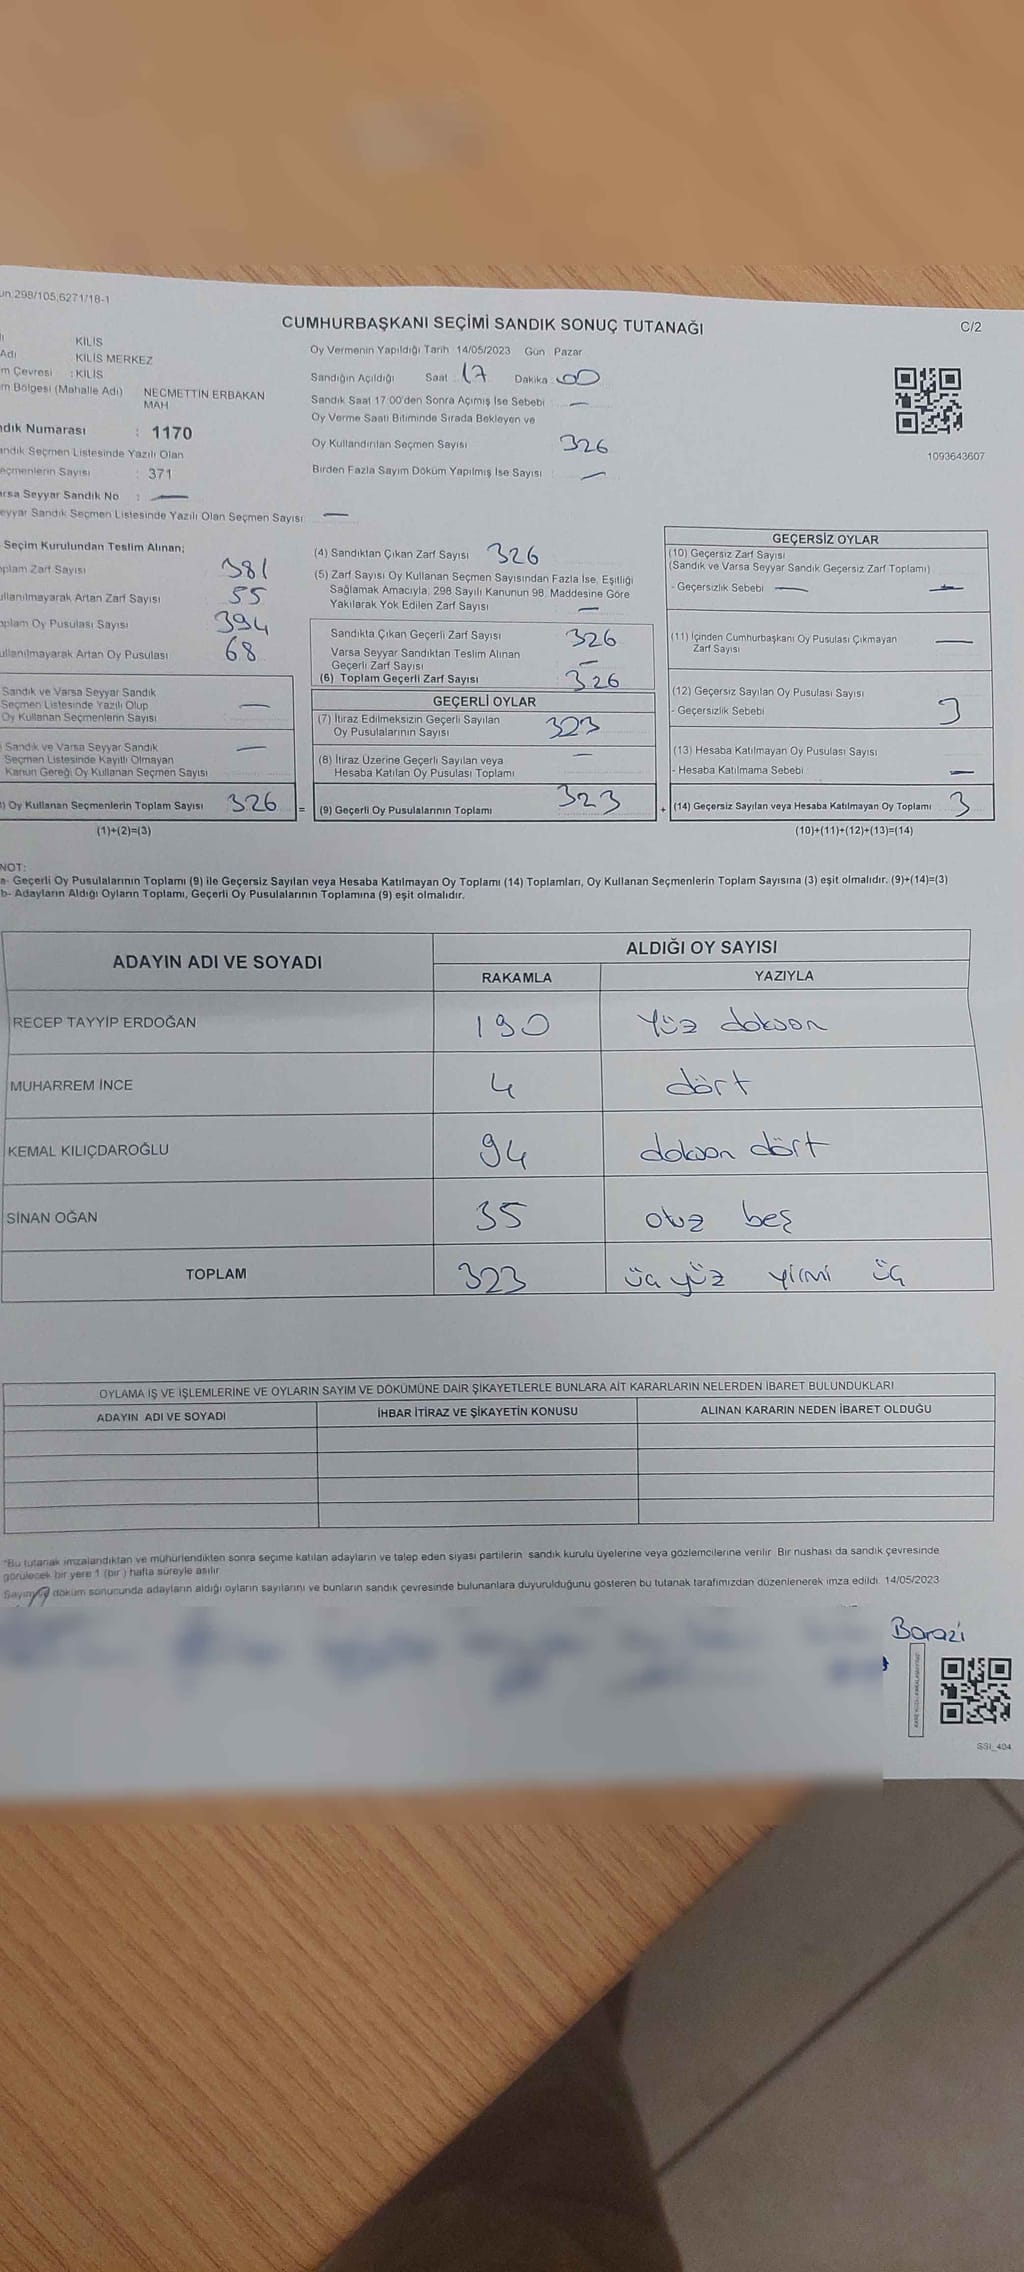 un:298/105;6271/18-1
CUMHURBAŞKANI SEÇİMİ SANDIK SONUÇ TUTANAĞI
C/2
KİLİS
Adı KİLİS MERKEZ
m Çevresi : KİLİS
m Bölgesi (Mahalle Adı) NECMETTİN ERBAKAN
MAH
ndık Numarası : 1170
andık Seçmen Listesinde Yazılı Olan
eçmenlerin Sayısı : 371
arsa Seyyar Sandık No : —
eyyar Sandık Seçmen Listesinde Yazılı Olan Seçmen Sayısı —
Oy Vermenin Yapıldığı Tarih 14/05/2023 Gün Pazar
Sandığın Açıldığı Saat 17 Dakika 00
Sandık Saat 17:00'den Sonra Açımış İse Sebebi : —
Oy Verme Saati Bitiminde Sırada Bekleyen ve
Oy Kullandırılan Seçmen Sayısı 326
Birden Fazla Sayım Döküm Yapılmış İse Sayısı : —
1093643607
Seçim Kurulundan Teslim Alınan;
oplam Zarf Sayısı 381
ullanılmayarak Artan Zarf Sayısı 55
oplam Oy Pusulası Sayısı 394
ullanılmayarak Artan Oy Pusulası 68
Sandık ve Varsa Seyyar Sandık
Seçmen Listesinde Yazılı Olup
Oy Kullanan Seçmenlerin Sayısı —
Sandık ve Varsa Seyyar Sandık
Seçmen Listesinde Kayıtlı Olmayan
Kanun Gereği Oy Kullanan Seçmen Sayısı —
) Oy Kullanan Seçmenlerin Toplam Sayısı 326 =
(1)+(2)=(3)
(4) Sandıktan Çıkan Zarf Sayısı 326
(5) Zarf Sayısı Oy Kullanan Seçmen Sayısından Fazla İse, Eşitliği
Sağlamak Amacıyla; 298 Sayılı Kanunun 98. Maddesine Göre
Yakılarak Yok Edilen Zarf Sayısı —
Sandıkta Çıkan Geçerli Zarf Sayısı 326
Varsa Seyyar Sandıktan Teslim Alınan
Geçerli Zarf Sayısı —
(6) Toplam Geçerli Zarf Sayısı 326
GEÇERLİ OYLAR
(7) İtiraz Edilmeksizin Geçerli Sayılan
Oy Pusulalarının Sayısı 323
(8) İtiraz Üzerine Geçerli Sayılan veya
Hesaba Katılan Oy Pusulası Toplamı —
(9) Geçerli Oy Pusulalarının Toplamı 323 +
GEÇERSİZ OYLAR
(10) Geçersiz Zarf Sayısı
(Sandık ve Varsa Seyyar Sandık Geçersiz Zarf Toplamı)
- Geçersizlik Sebebi — —
(11) İçinden Cumhurbaşkanı Oy Pusulası Çıkmayan
Zarf Sayısı —
(12) Geçersiz Sayılan Oy Pusulası Sayısı
- Geçersizlik Sebebi 3
(13) Hesaba Katılmayan Oy Pusulası Sayısı
- Hesaba Katılmama Sebebi —
(14) Geçersiz Sayılan veya Hesaba Katılmayan Oy Toplamı 3
(10)+(11)+(12)+(13)=(14)
NOT:
a- Geçerli Oy Pusulalarının Toplamı (9) ile Geçersiz Sayılan veya Hesaba Katılmayan Oy Toplamı (14) Toplamları, Oy Kullanan Seçmenlerin Toplam Sayısına (3) eşit olmalıdır. (9)+(14)=(3)
b- Adayların Aldığı Oyların Toplamı, Geçerli Oy Pusulalarının Toplamına (9) eşit olmalıdır.
ADAYIN ADI VE SOYADI ALDIĞI OY SAYISI
RAKAMLA YAZIYLA
RECEP TAYYİP ERDOĞAN 190 Yüz dokson
MUHARREM İNCE 4 dört
KEMAL KILIÇDAROĞLU 94 dokson dört
SİNAN OĞAN 35 otuz beş
TOPLAM 323 üç yüz yirmi üç
OYLAMA İŞ VE İŞLEMLERİNE VE OYLARIN SAYIM VE DÖKÜMÜNE DAİR ŞİKAYETLERLE BUNLARA AİT KARARLARIN NELERDEN İBARET BULUNDUKLARI
ADAYIN ADI VE SOYADI İHBAR İTİRAZ VE ŞİKAYETİN KONUSU ALINAN KARARIN NEDEN İBARET OLDUĞU
*Bu tutanak imzalandıktan ve mühürlendikten sonra seçime katılan adayların ve talep eden siyasi partilerin sandık kurulu üyelerine veya gözlemcilerine verilir. Bir nüshası da sandık çevresinde
görülecek bir yere 1 (bir ) hafta süreyle asılır
Sayım ve döküm sonucunda adayların aldığı oyların sayılarını ve bunların sandık çevresinde bulunanlara duyurulduğunu gösteren bu tutanak tarafımızdan düzenlenerek imza edildi. 14/05/2023
Barazi
SSI_404